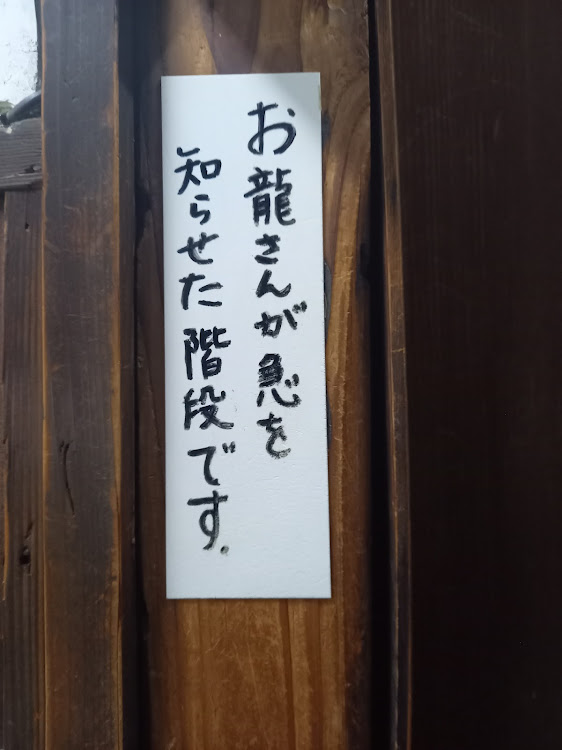 お龍さんが急を
知らせた階段です.